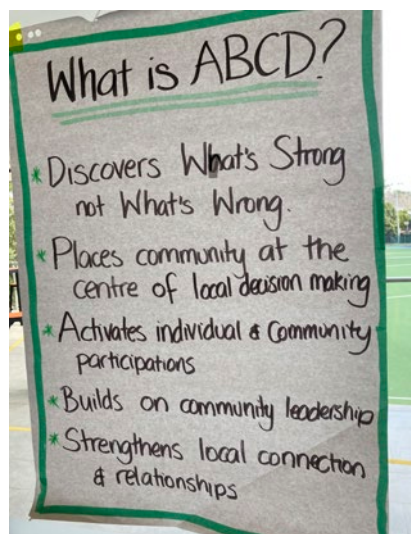 What is ABCD?
* Discovers What's Strong
not What's Wrong.
* Places community at the
centre of local decision making
* Activates individual & Community
participations
* Builds on community leadership
* Strengthens local connection
& relationships